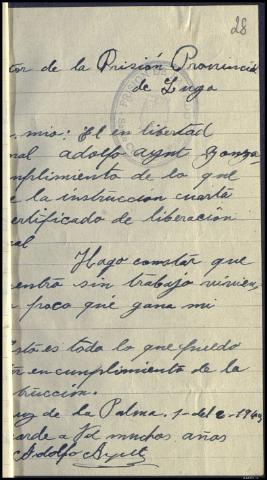 28
tor de la Prisión Provincial
de Lugo
mio: El en libertad
nal Adolfo Aynt Gonza
mplimiento de lo que
e la instrucción cuarta
ertificado de liberación
nal
Hago constar que
entro sin trabajo vivien,
poco que gana mi
Esto es todo lo que puedo
en cumplimiento de la
trucción.
uz de la Palma. 1-del 2-194
arde a Vd muchos años
Adolfo Aynt